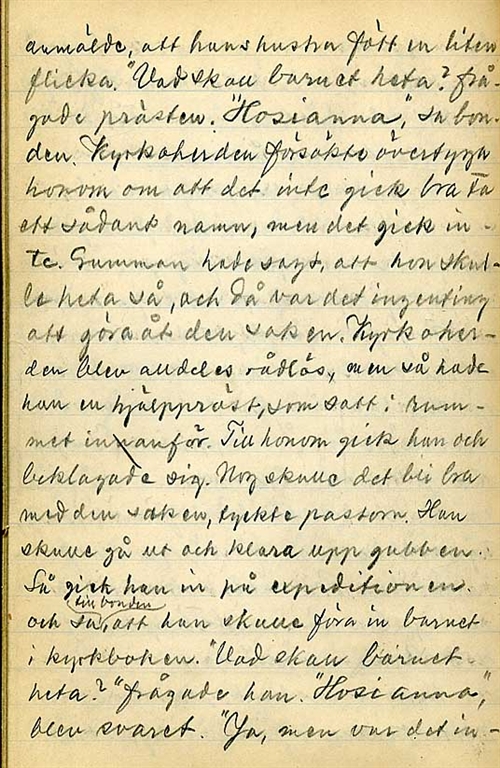 anmälde, att hans hustru fått en liten
flicka. "Vad skall barnet heta? frå-
gade prästen. "Hosianna," sa bon-
den. Kyrkoherden försökte övertyga
honom om att det inte gick bra ta
ett sådant namn, men det gick in-
te. Gumman hade sagt, att hon skul-
le heta så, och då var det ingenting
att göra åt den saken. Kyrkoher-
den blev alldeles rådlös, men så hade
han en hjälppräst, som satt i rum-
met innanför. Till honom gick han och
beklagade sig. Nog skulle det bli bra
med den saken, tyckte pastorn. Han
skulle gå ut och klara upp gubben.
Så gick han in på expeditionen.
till bonden
och sa, att han skulle föra in barnet
i kyrkboken. "Vad skall barnet
heta?" frågade han. "Hosianna,"
blev svaret. "Ja, men var det in-